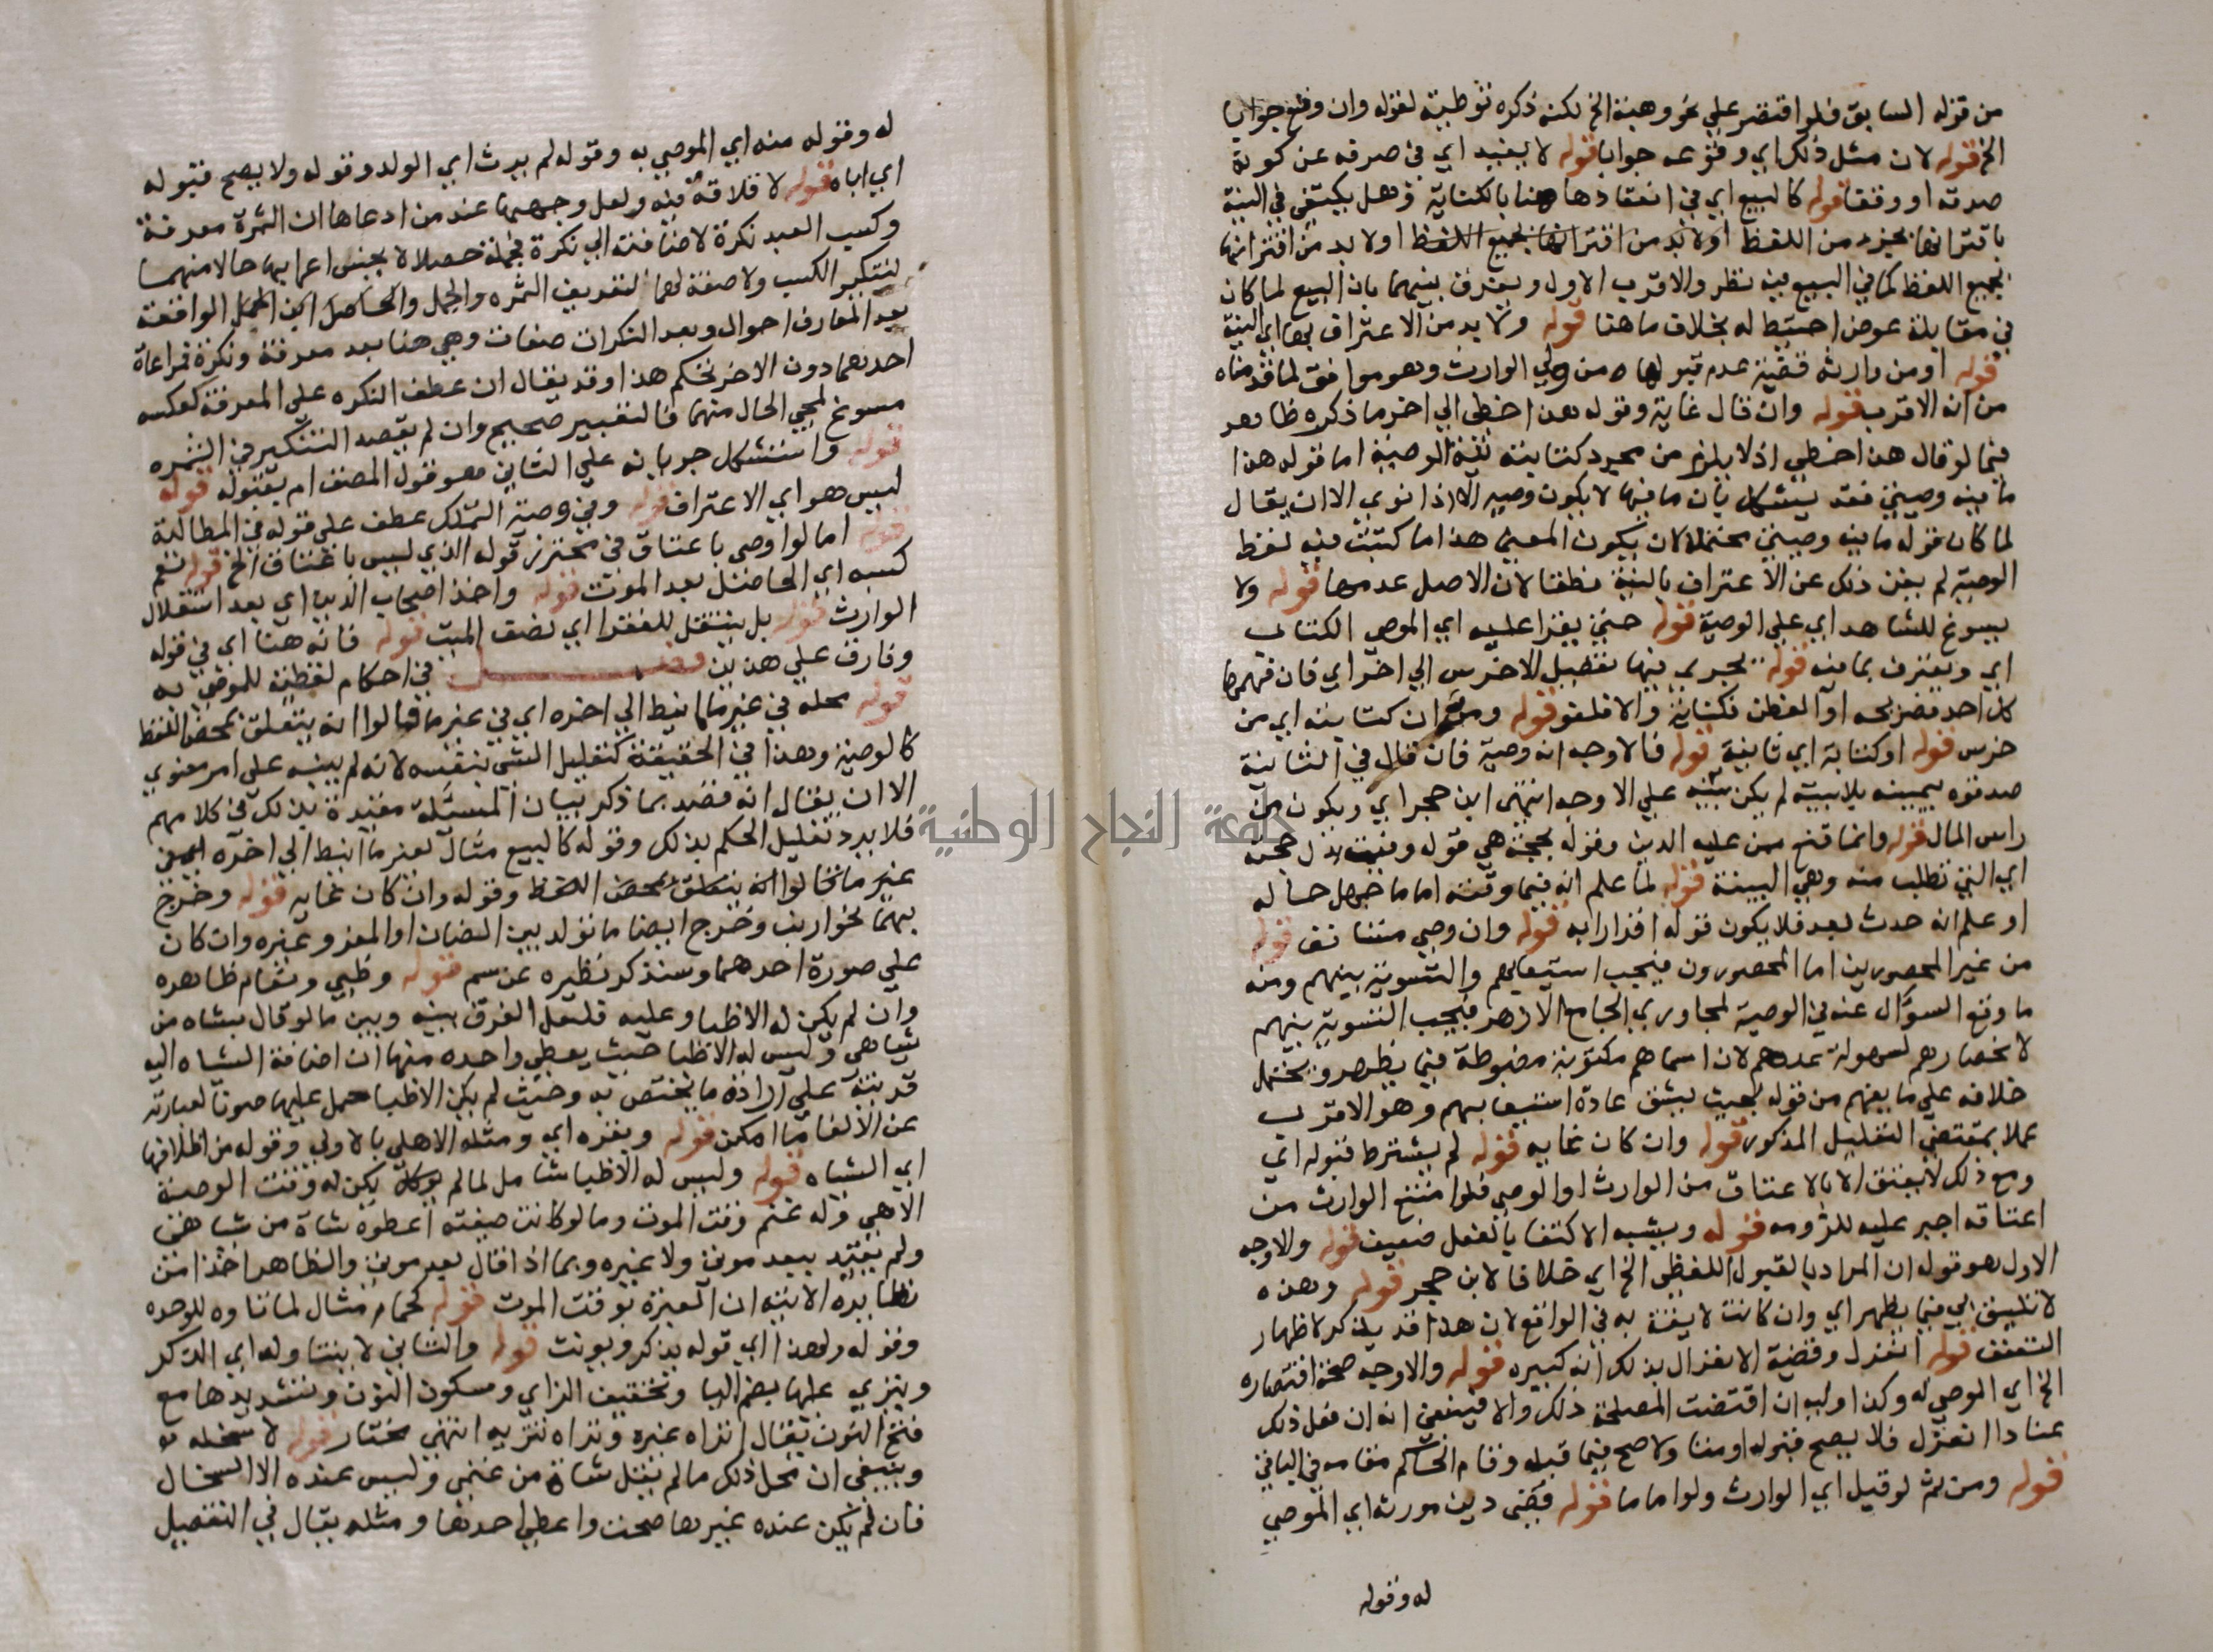 من قوله السابق فلو اقتصر علي نحو وهبته الخ لكنه ذكره توطية لقوله وان وقع جوابا
الخ قوله لان مثل ذلك اي وقوعه جوابا قوله لا يفيد اي في صرفه عن كونه
صدقة او وقفا قوله كالبيع اي في انعقادها هنا بالكتابة وهل يكتفي في النية
باقترانها بجزء من اللفظ اولا بد من اقترانها بجميع اللفظ اولا بد من اقترانها
بجميع اللفظ كما في البيع فيه نظر والاقرب الاول ويفرق بينهما بان البيع لما كان
في مقابلة عوض احتيط له بخلاف ما هنا قوله ولا بد من الاعتراف بها اي النية
قوله او من وارثه قضية عدم قبولها من ولي الوارث وهو موافق لما قدمناه
من انه الاقرب قوله وان قال غاية وقوله هذا خطي الي اخر ما ذكره ظاهر
فيما لو قال هذا خطي اذ لا يلزم من مجرد كتابته نية الوصية اما قوله هذا
ما فيه وصيتي فقد يشكل بان ما فيها لا يكون وصية الا اذا نوي الا ان يقال
لما كان قوله ما فيه وصيتي محتملا لان يكون المعني هذا ما كتبت فيه لفظ
الوصية لم يغن ذلك عن الاعتراف بالنية نطقا لان الاصل عدمها قوله ولا
يسوغ للشاهد اي علي الوصية قوله حتي يقرا عليه اي الموصي الكتاب
اي ويعترف بما فيه قوله يجري فيها تفصيل الاخرس الي اخر اي فان فهمها
كل احد فصريحه او الفطن فكناية والا فلغو قوله ومع ان كتابته اي من
خرس قوله او كتابة اي ثانية قوله فالاوجه انه وصية فان قال في الثانية
صدقوه بيمينه بلا بينة لم يكن علي الاوجه انتهي ابن حجر اي ويكون من
راس المال قوله وانما قنع ممن عليه الدين وقوله بحجة هي قوله وقيت بدل حجة
اي التي تطلب منه وهي البينة قوله لما علم انه فيما وقته اما ما جهل حاله
او علم انه حدث بعد فلا يكون قوله اقرارا به قوله وان وصي قوله
من غير المحصورين اما المحصورون فيجب استيعابهم والتسوية بينهم ومنه
ما وقع السؤال عنه في الوصية لمجاوري الجامع الازهر فيجب التسوية بينهم
لانحصارهم لسهولة عدهم لان اسماهم مكتوبة مضبوطة فيما يظهر ويحتمل
خلافه علي ما يفهم من قوله بحيث يشق عادة استيعابهم وهو الاقرب
عملا بمقتضي التعليل المذكور قوله وان كان غاية قوله لم يشترط قبوله اي
ومع ذلك لا يعتق الا بالاعتاق من الوارث او الوصي فلو امتنع الوارث من
اعتاقه اجبر عليه للزومه قوله ويشبه الاكتفا بالفعل ضعيف قوله والاوجه
الاول هو قوله ان المراد بالقبول اللفظي الخ اي خلافا لابن حجر قوله وهذه
لا تليق بي فيما يظهر اي وان كانت لايقة به في الواقع لان هذا قد يذكر لاظهار
التعفف قوله انعزل وقضية الانعزال بذلك انه كبيره قوله والاوجه صحة اقتصاره
الخ اي الموصي له وكذا وليه ان اقتضت المصلحة ذلك والا فينبغي انه ان فعل ذلك
عنادا انعزل فلا يصح قبوله او منا ولا صح فيما قبله وقام الحاكم مقامه في الباقي
قوله ومن ثم لو قيل اي الوارث ولو اماما قوله فكفي دين مورثه اي الموصي
له وقوله
له وقوله منه اي الموصي به وقوله لم يرث اي الولد وقوله ولا يصح قبوله
اي اباه قوله لا قلاقة فيه ولعل وجهها عند من ادعاها ان الثمرة معرفة
وكسب العبد نكرة لاضافته الي نكرة فجملة حصلا لا يحسن اعرابها حالا منهما
لتنكير الكسب ولا صفة لهما لتعريف الثمره والحمل والحاصل ان الجمل الواقعة
بعد المعارف احوال وبعد النكرات صفات وهي هنا بعد معرفة ونكرة فمراعاة
احدهما دون الاخر تحكم هذا وقد يقال ان عطف النكره علي المعرفة كعكسه
مسوغ لمجي الحال منهما فالتعبير صحيح وان لم يقصد التنكير في الثمره
قوله واستشكل جريانه علي الثاني هو قول المصنف ام بقبوله قوله
ليس هو اي الاعتراف قوله وفي وصية التملك عطف علي قوله في المطالبة
قوله اما لو اوصي باعتاق في محترز قوله الذي ليس باعتاق الخ قوله نعم
كسبه اي الحاصل بعد الموت قوله واخذ اصحاب الدين اي بعد استقلال
الوارث قوله بل ينتقل للفقرا اي نصف الميت قوله فانه هنا اي في قوله
وفارق علي هذين فصل في احكام لفظية للموصي به
قوله محله في غير ما انيط الي اخره اي في غير ما قالوا انه يتعلق بمحض اللفظ
كالوصية وهذا في الحقيقة كتعليل الشي بنفسه لانه لم يبينه علي امر معنوي
الا ان يقال انه قصد بما ذكر بيان المسئلة مقيدة بذلك في كلامهم
فلا يرد تعليل الحكم بذلك وقوله كالبيع مثال لغير ما انيط الي اخره اي في
غير ما قالوا انه يتعلق بمحض اللفظ وقوله وان كان غايه قوله وخرج
بهما نحو ارنب وخرج ايضا ما تولد بين الضان او المعز وغيره وان كان
علي صورة احدهما وسنذكر نظيره عن سم قوله وظبي ونعام ظاهره
وان لم يكن له الاظبا وعليه فلعل الفرق بينه وبين ما لو قال بشاه من
شياهي وليس له الا ظبا حيث يعطي واحده منها ان اضافة الشاه اليه
قرينة علي ارادة ما يختص به وحيث لم يكن الا ظبا حمل عليها صونا لعبارته
عن الالغا ما امكن قوله وبقره اي ومثله الاهلي بالاولي وقوله من اطلاقها
اي الشاه قوله وليس له الا ظبا شامل لما لم يكن له وقت الوصية
الا هي وله غنم وقت الموت وما لو كانت صيغته اعطوه شاة من شاهي
ولم يقيد ببعد موتي ولا غيره وبما اذا قال بعد موتي والظاهر اخذا من
نظايره الاتية ان العبرة بوقت الموت قوله كحمام مثال لما تاوه للوحده
وقوله ولهذا اي قوله يذكر ويونث قوله والثاني لا يتناوله اي الذكر
وينزي عليها بضم اليا وتخفيف الزاي وسكون النون وتشديدها مع
فتح النون يقال انزاه غيره ونزاه تنزيه انتهي مختار قوله لا سخله
وينبغي ان محل ذلك ما لم يقل شاة من غنمي وليس عنده الا السخال
فان لم يكن عنده غيرها صحت واعطي احدها ومثله يقال في التفصيل
جامعة النجاح الوطنية